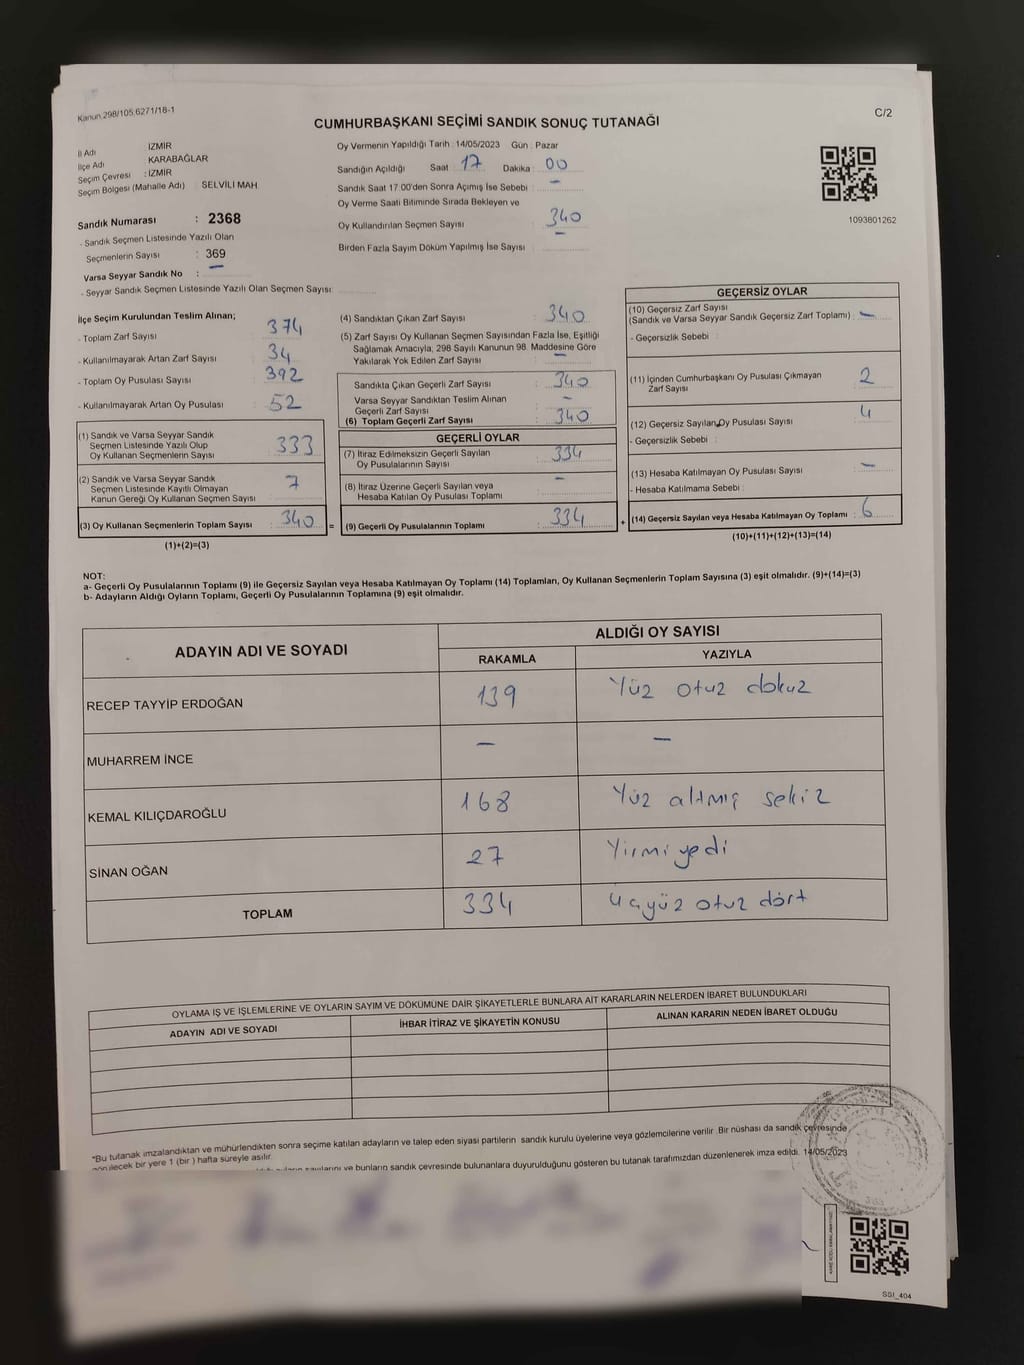 Kanun 298/105.6271/18-1
C/2
CUMHURBAŞKANI SEÇİMİ SANDIK SONUÇ TUTANAĞI
İl Adı : İZMİR
İlçe Adı : KARABAĞLAR
Seçim Çevresi : İZMİR
Seçim Bölgesi (Mahalle Adı) : SELVİLİ MAH.
Sandık Numarası : 2368
- Sandık Seçmen Listesinde Yazılı Olan
Seçmenlerin Sayısı : 369
Varsa Seyyar Sandık No : –
- Seyyar Sandık Seçmen Listesinde Yazılı Olan Seçmen Sayısı:
Oy Vermenin Yapıldığı Tarih : 14/05/2023 Gün : Pazar
Sandığın Açıldığı Saat : 17 Dakika : 00
Sandık Saat 17.00'den Sonra Açımış İse Sebebi : –
Oy Verme Saati Bitiminde Sırada Bekleyen ve
Oy Kullandırılan Seçmen Sayısı : 340
Birden Fazla Sayım Döküm Yapılmış İse Sayısı : –
1093801262
İlçe Seçim Kurulundan Teslim Alınan;
- Toplam Zarf Sayısı : 374
- Kullanılmayarak Artan Zarf Sayısı : 34
- Toplam Oy Pusulası Sayısı : 392
- Kullanılmayarak Artan Oy Pusulası : 52
(1) Sandık ve Varsa Seyyar Sandık
Seçmen Listesinde Yazılı Olup
Oy Kullanan Seçmenlerin Sayısı : 333
(2) Sandık ve Varsa Seyyar Sandık
Seçmen Listesinde Kayıtlı Olmayan
Kanun Gereği Oy Kullanan Seçmen Sayısı : 7
(3) Oy Kullanan Seçmenlerin Toplam Sayısı : 340
(1)+(2)=(3)
(4) Sandıktan Çıkan Zarf Sayısı : 340
(5) Zarf Sayısı Oy Kullanan Seçmen Sayısından Fazla İse, Eşitliği
Sağlamak Amacıyla; 298 Sayılı Kanunun 98. Maddesine Göre
Yakılarak Yok Edilen Zarf Sayısı : –
Sandıkta Çıkan Geçerli Zarf Sayısı : 340
Varsa Seyyar Sandıktan Teslim Alınan
Geçerli Zarf Sayısı : –
(6) Toplam Geçerli Zarf Sayısı : 340
GEÇERLİ OYLAR
(7) İtiraz Edilmeksizin Geçerli Sayılan
Oy Pusulalarının Sayısı : 334
(8) İtiraz Üzerine Geçerli Sayılan veya
Hesaba Katılan Oy Pusulası Toplamı : –
= (9) Geçerli Oy Pusulalarının Toplamı : 334 +
GEÇERSİZ OYLAR
(10) Geçersiz Zarf Sayısı
(Sandık ve Varsa Seyyar Sandık Geçersiz Zarf Toplamı) : –
- Geçersizlik Sebebi :
(11) İçinden Cumhurbaşkanı Oy Pusulası Çıkmayan
Zarf Sayısı : 2
(12) Geçersiz Sayılan Oy Pusulası Sayısı : 4
- Geçersizlik Sebebi :
(13) Hesaba Katılmayan Oy Pusulası Sayısı : –
- Hesaba Katılmama Sebebi :
(14) Geçersiz Sayılan veya Hesaba Katılmayan Oy Toplamı : 6
(10)+(11)+(12)+(13)=(14)
NOT:
a- Geçerli Oy Pusulalarının Toplamı (9) ile Geçersiz Sayılan veya Hesaba Katılmayan Oy Toplamı (14) Toplamları, Oy Kullanan Seçmenlerin Toplam Sayısına (3) eşit olmalıdır. (9)+(14)=(3)
b- Adayların Aldığı Oyların Toplamı, Geçerli Oy Pusulalarının Toplamına (9) eşit olmalıdır.
ADAYIN ADI VE SOYADI ALDIĞI OY SAYISI
RAKAMLA YAZIYLA
RECEP TAYYİP ERDOĞAN 139 Yüz otuz dokuz
MUHARREM İNCE – –
KEMAL KILIÇDAROĞLU 168 Yüz altmış sekiz
SİNAN OĞAN 27 Yirmi yedi
TOPLAM 334 üçyüz otuz dört
OYLAMA İŞ VE İŞLEMLERİNE VE OYLARIN SAYIM VE DÖKÜMÜNE DAİR ŞİKAYETLERLE BUNLARA AİT KARARLARIN NELERDEN İBARET BULUNDUKLARI
ADAYIN ADI VE SOYADI İHBAR İTİRAZ VE ŞİKAYETİN KONUSU ALINAN KARARIN NEDEN İBARET OLDUĞU
*Bu tutanak imzalandıktan ve mühürlendikten sonra seçime katılan adayların ve talep eden siyasi partilerin sandık kurulu üyelerine veya gözlemcilerine verilir. Bir nüshası da sandık çevresinde
bir yere 1 (bir) hafta süreyle asılır.
ve bunların sandık çevresinde bulunanlara duyurulduğunu gösteren bu tutanak tarafımızdan düzenlenerek imza edildi. 14/05/2023
SSI_404